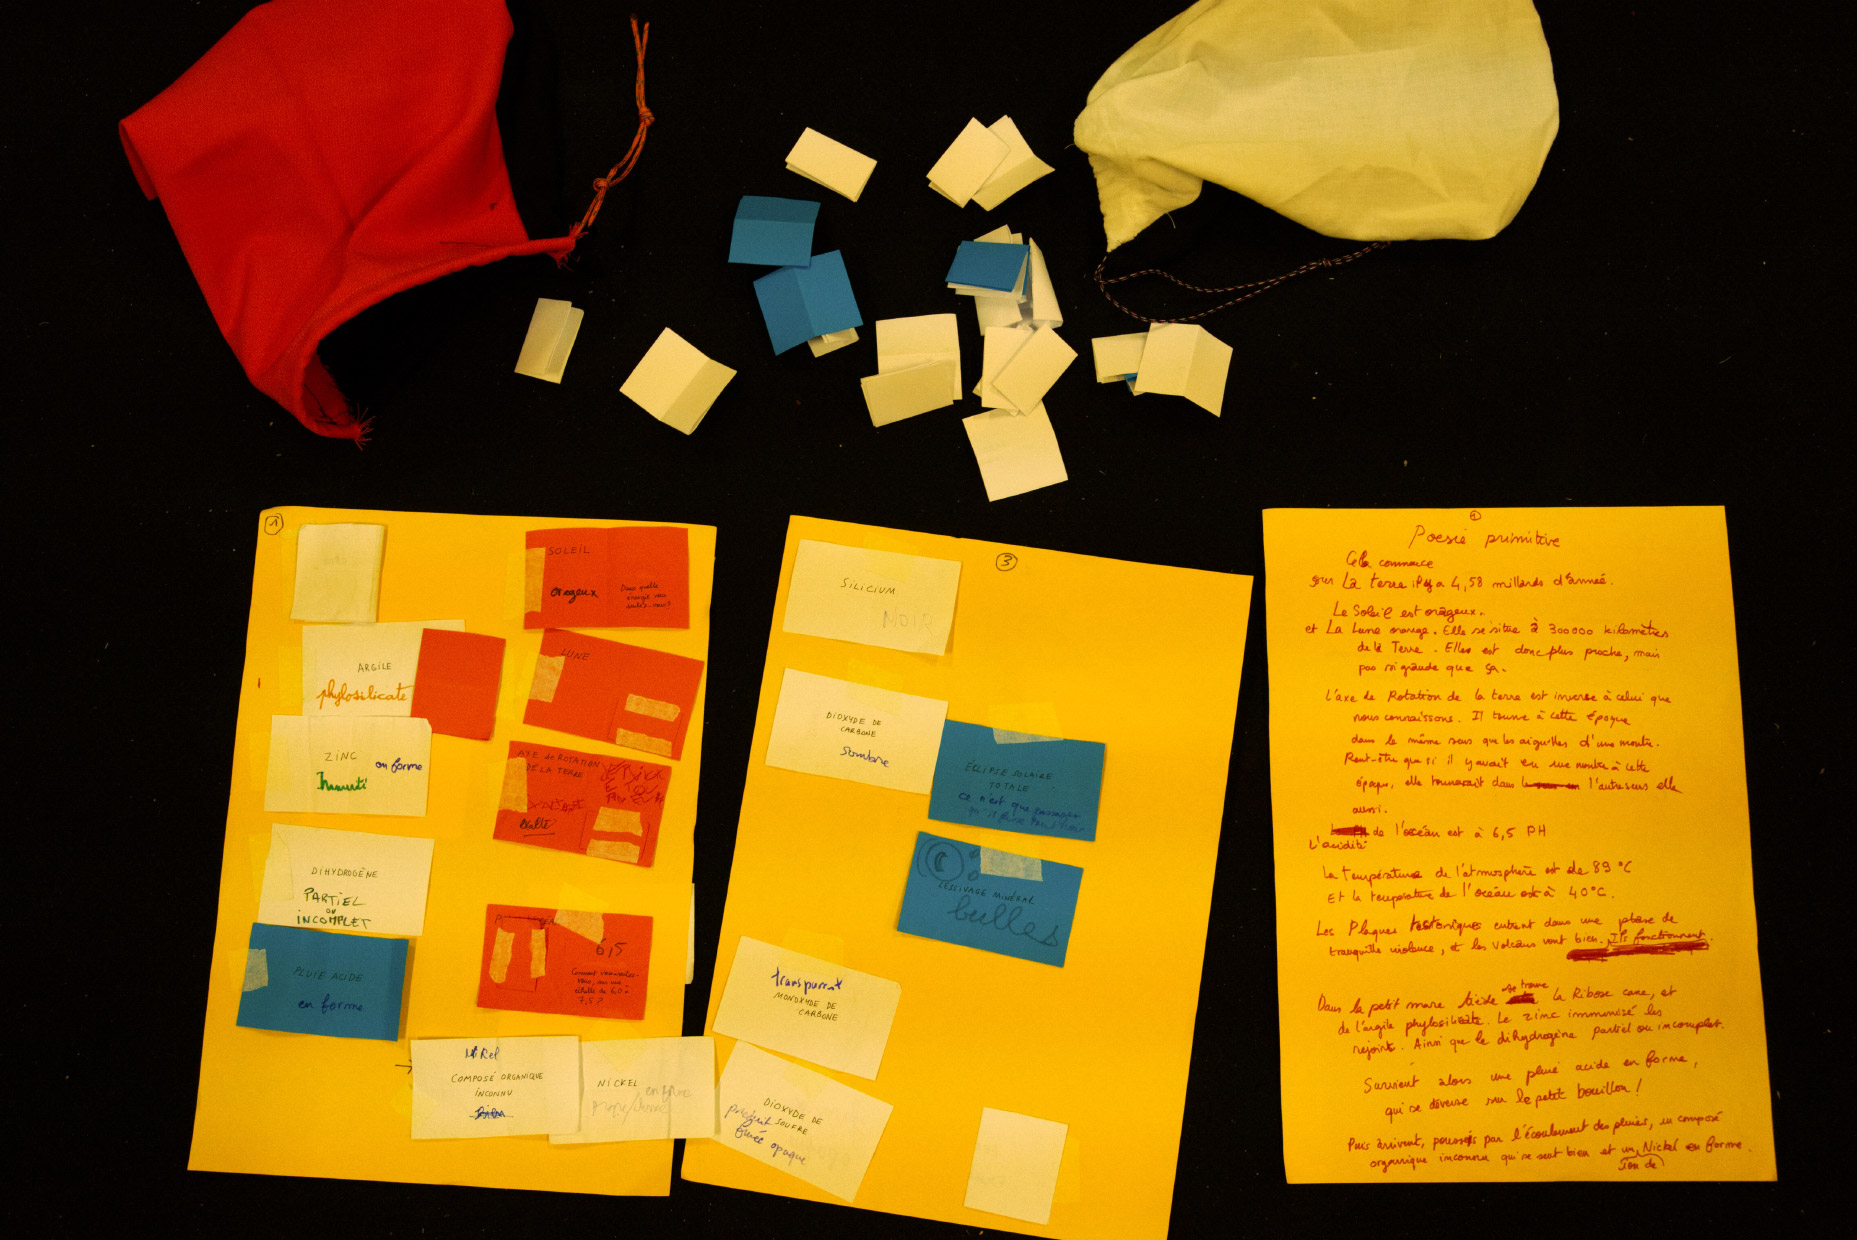 1
SOLEIL
orageux
Dans quelle
énergie
ARGILE
phylosilicate
LUNE
ZINC
en forme
Immunité
AXE de ROTATION
DE LA TERRE
DIHYDROGÈNE
PARTIEL
ou
INCOMPLET
6,5
échelle de 6,0 à
7,5 ?
PLUIE ACIDE
en forme
COMPOSÉ ORGANIQUE
INCONNU
NICKEL
en forme
3
SILICIUM
NOIR
DIOXYDE DE
CARBONE
Sombre
ÉCLIPSE SOLAIRE
TOTALE
ce n'est que passager
LESSIVAGE MINÉRAL
bulles
transparent
MONOXYDE DE
CARBONE
DIOXYDE DE
SOUFRE
opaque
Poesie primitive
Cela commence
sur La terre il y a 4,58 millards d'année.
Le Soleil est orageux.
et La Lune orange. Elle se situe à 300000 kilomètres
de la Terre. Elle est donc plus proche, mais
pas si grande que ça.
L'axe de Rotation de la terre est inverse à celui que
nous connaissons. Il tourne à cette époque
dans le même sens que les aiguilles d'une montre.
Peut-être que si il y avait eu une montre à cette
époque, elle tournerait dans l'autre sens elle
aussi.
de l'océan est à 6,5 PH
L'acidité
La température de l'atmosphère est de 89 °C
Et la température de l'océan est à 40°C.
Les Plaques tectoniques entrent dans une phase de
tranquille violence, et les volcans vont bien. Ils fonctionnent.
Dans la petit mare Acide se trouve la Ribose cane, et
de l'argile phylosilicate. Le zinc immunisé les
rejoint. Ainsi que le dihydrogène partiel ou incomplet.
Survient alors une pluie acide en forme,
qui se déverse sur le petit bouillon !
Puis arrivent, poussés par l'écoulement des pluies, un composé
organique inconnu qui se sent bien et un Nickel en forme.
ion de